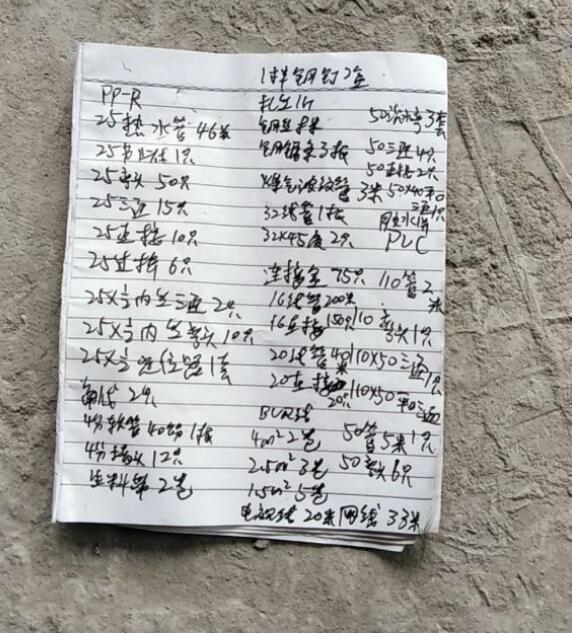 PP-R
25热水管46米
25 1只
25弯头50只
25三通15只
25直接10只
25过桥6只
25X½内丝三通2只
25X½内丝弯头10只
25X½定位器1套
角阀2只
4分软管40 1根
4分堵头12只
生料带2卷
1 钢钉2盒
扎丝1
钢锯条3根
煤气波纹管3米
32线管1根
32X45度2只
连接盒75只
16线管200米
16直接150只
20线管40米
20直接20只
BVR线
4m²2卷
2.5m²3卷
1.5m²5卷
电视线20米 网线33米
50 弯3套
50三通4只
50直接2只
50X40
三通1只
胶水1
PVC
110管2米
110弯头1只
110X50三通1只
110X50 三通
50管5米1只
50弯头6只